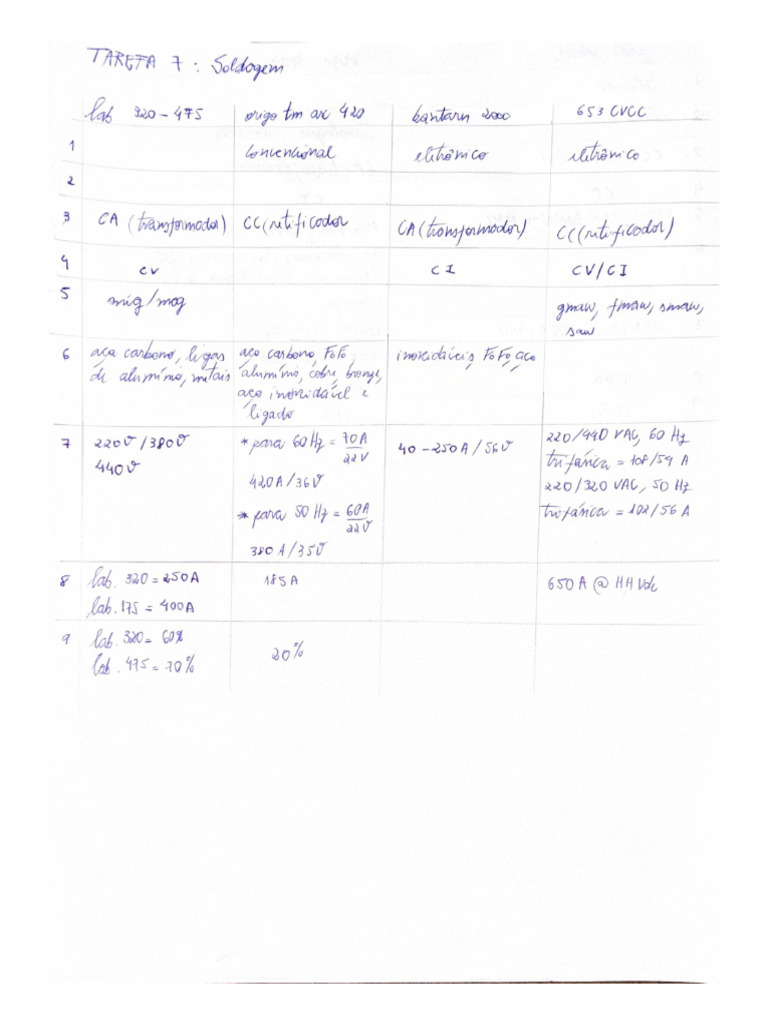 TAREFA 7: Soldagem
lab 320-475 origo tm arc 420 bantarn 2000 653 CVCC
1 convencional eletrônico eletrônico
2
3 CA (transformador) CC (retificador CA (transformador) CC (retificador)
4 CV CI CV/CI
5 mig/mag gmaw, fmaw, smaw,
saw
6 aça carbono, ligas aço carbono, FoFo, inoxidáveis, FoFo, aço
de alumínio, metais alumínio, cobre, bronze,
aço inoxidável e
ligado
7 220V/380V * para 60 Hz = 70A/22V 40-250A/56V 220/440 VAC, 60 Hz
440V 420A/36V trifásica = 108/54 A
* para 50 Hz = 60A/22V 220/320 VAC, 50 Hz
380A/35V trofásica = 102/56 A
8 lab. 320 = 250A 185A 650A @ HH Vdc
lab. 175 = 400A
9 lab. 320 = 60% 20%
lab. 475 = 70%